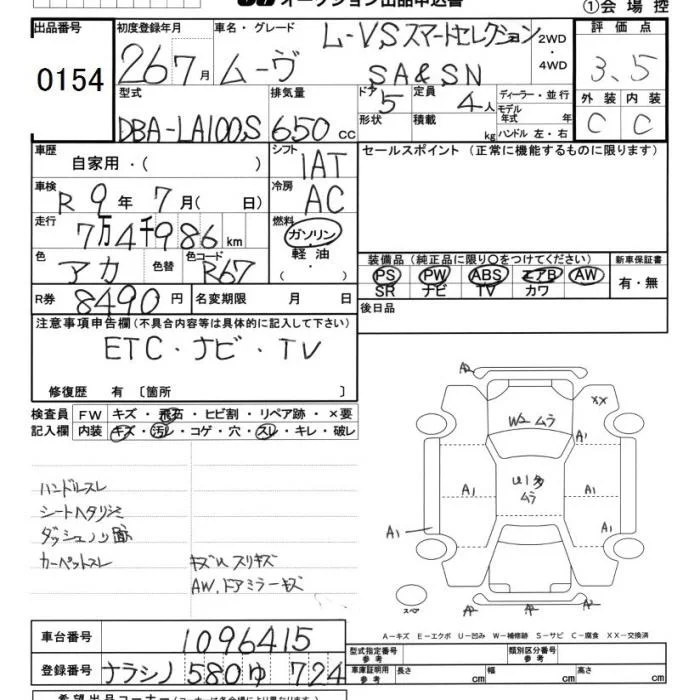 オークション出品申込書
①会場控
出品番号 初度登録年月 車名・グレード 評価点
0154 26 7月 ムーヴ L-VSスマートセレクション SA&SN 2WD・4WD 3.5
型式 排気量 ドア 定員 ディーラー・並行 外装 内装
DBA-LA100S 650cc 5 4人 モデル年式 年 C C
形状 積載 kg ハンドル 左・右
車歴 シフト セールスポイント (正常に機能するものに限ります)
自家用・( ) IAT
車検 冷房
R 9年 7月( 日) AC
走行 燃料
7万4千986km ガソリン・軽油 ( ・ )
色 色替 色コード 装備品(純正品に限り○をつけてください) 新車保証書
アカ R67 PS PW ABS エアB AW 有・無
SR ナビ TV カワ
R券 8490円 名変期限 月 日 後日品
注意事項申告欄(不具合内容等は具体的に記入して下さい)
ETC・ナビ・TV
修復歴 有 〔箇所 〕
検査員 FW キズ・飛石・ヒビ割・リペア跡・×要
記入欄 内装 キズ・汚レ・コゲ・穴・スレ・キレ・破レ
ハンドルスレ
シートヘタリシミ
ダッシュノリ跡
カーペットスレ キズUスリキズ
AW.ドアミラーキズ
A2
XX
W2ムラ
A1
U1多ムラ
A1 A1 A1 A1
スペア
A2 A2 A2
A－キズ E－エクボ U－凹み W－補修跡 S－サビ C－腐食 XX－交換済
車台番号 1096415
型式指定番号 参考 類別区分番号 参考
登録番号 ナラシノ 580 ゆ 724
車庫証明用 参考 長さ cm 幅 cm 高さ cm
希望出品コーナー